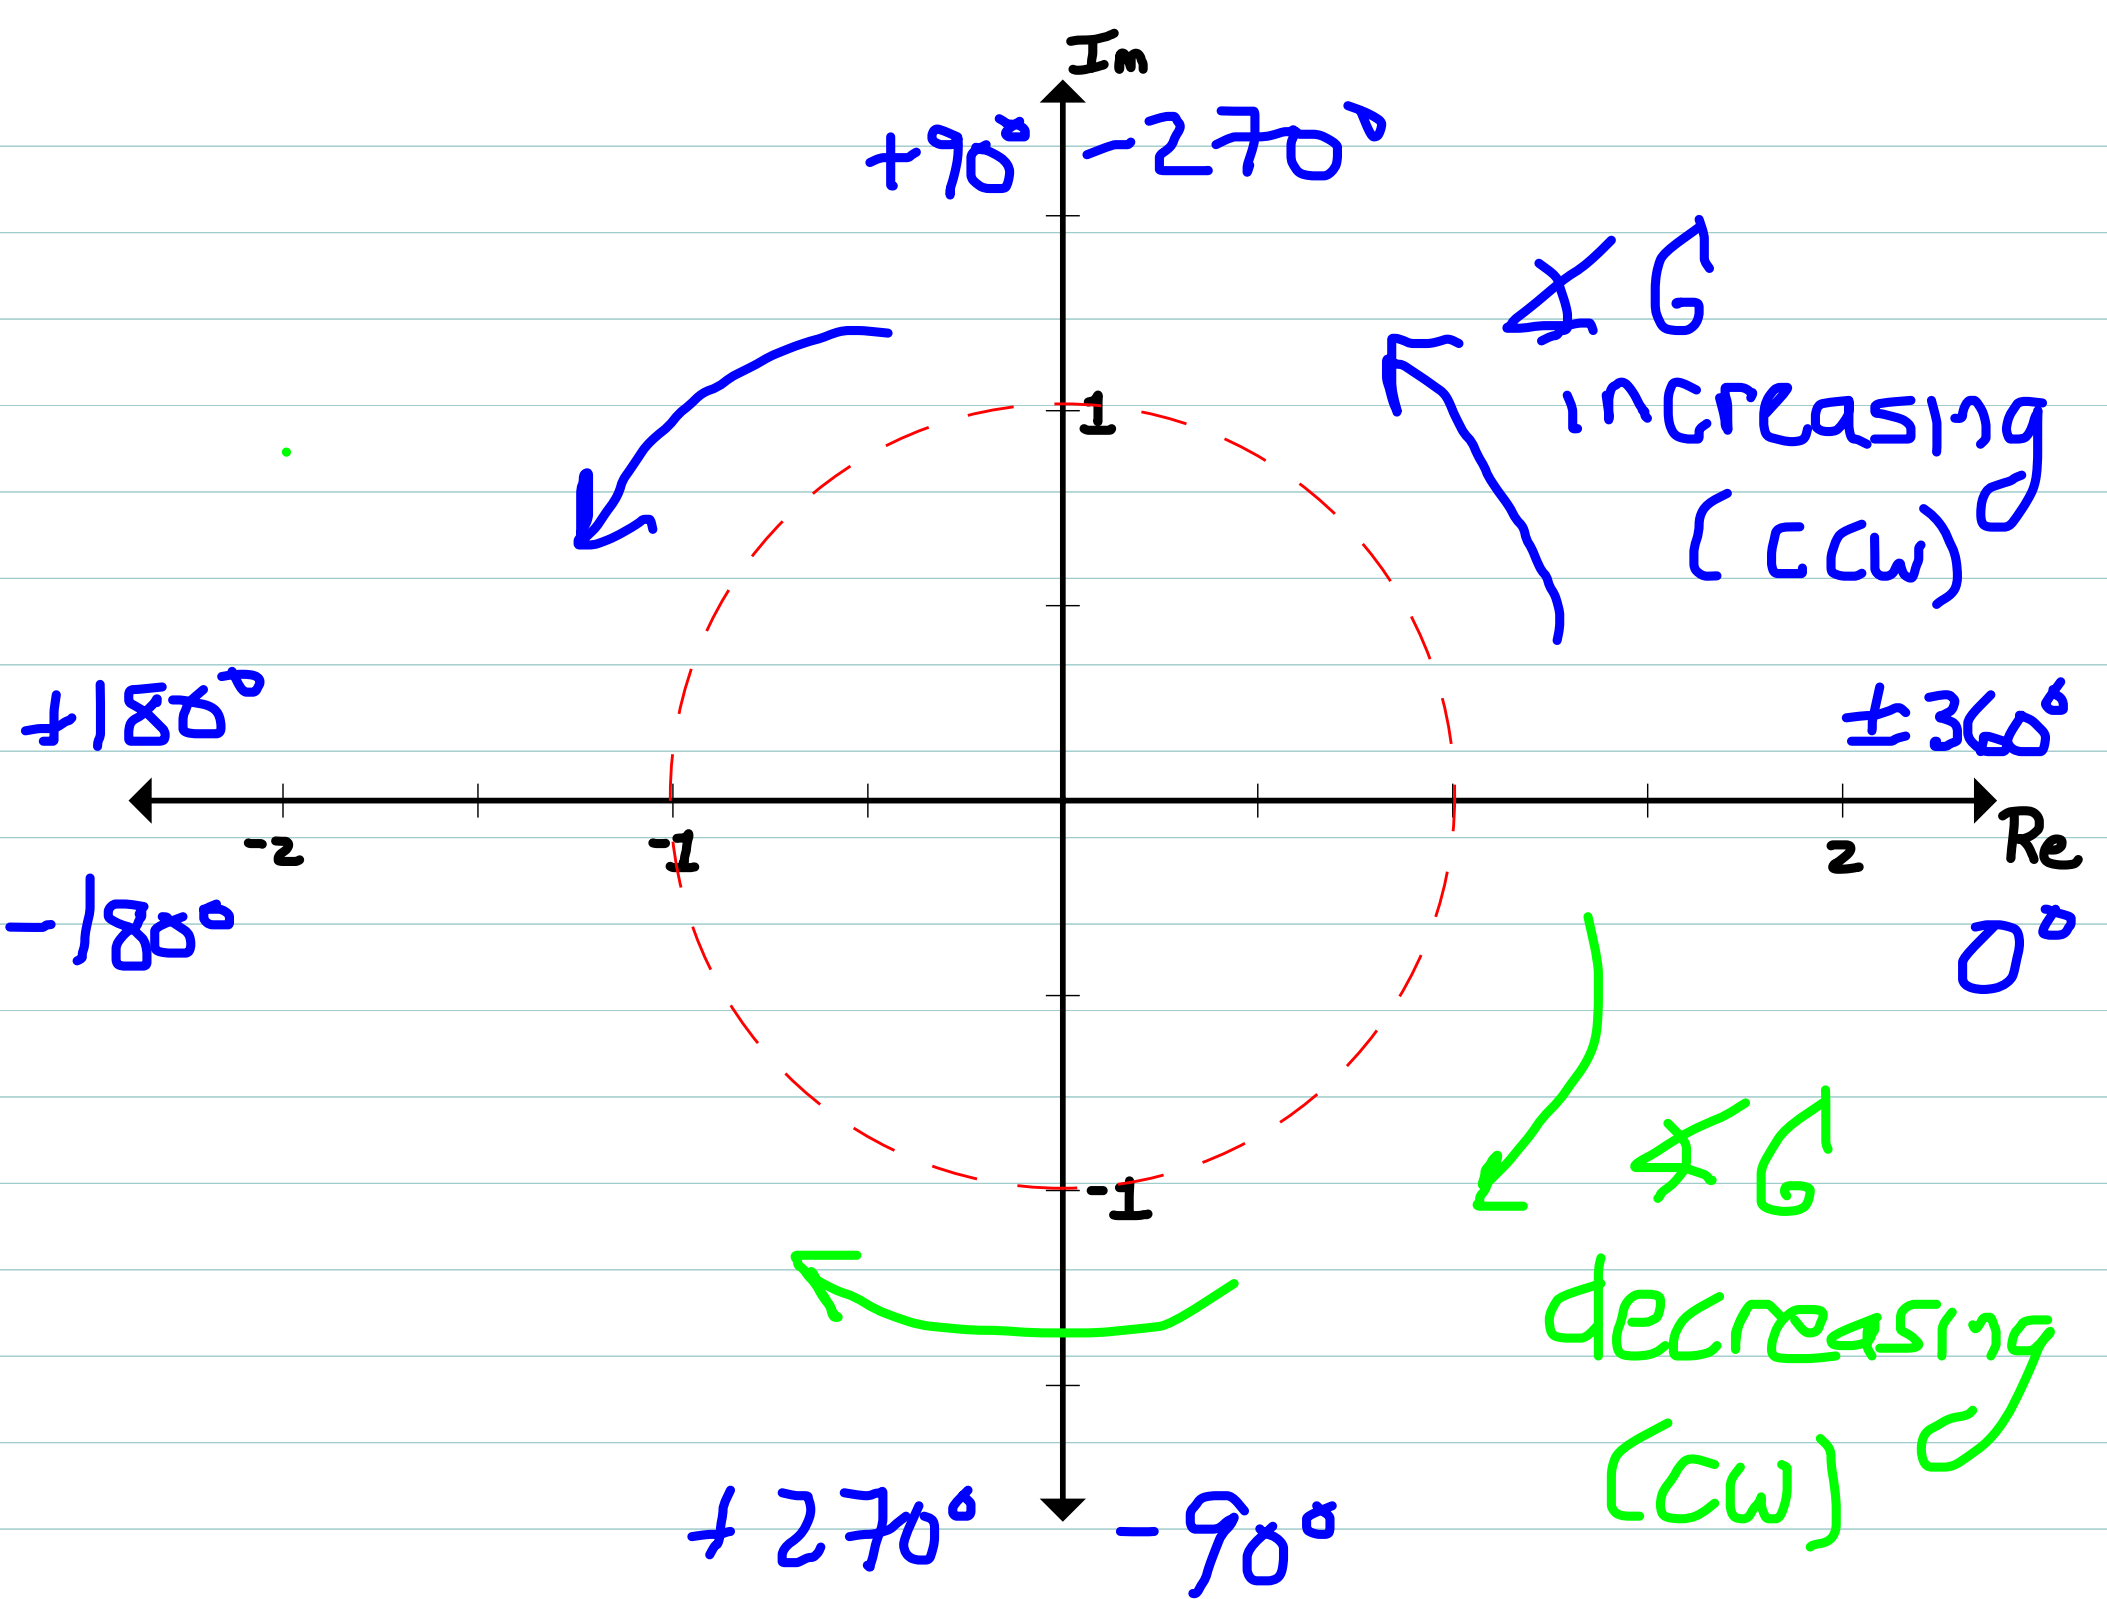 Im
+90° -270°
∡G
increasing
(CCW)
1
+180°
±360°
-2 -1 2 Re
-180°
0°
∡G
-1
decreasing
(CW)
+270° -90°